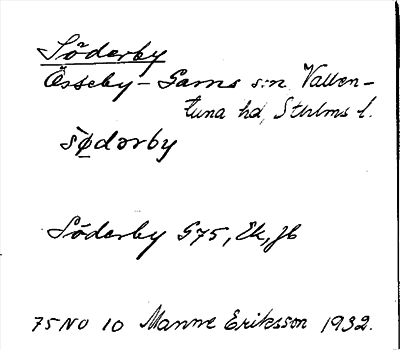 Söderby
Össeby-Garns s:n Vallen-
tuna hd, Sthlms l.
södərby
Söderby G75, Ek, Jb
75 NO 10 Manne Eriksson 1932.